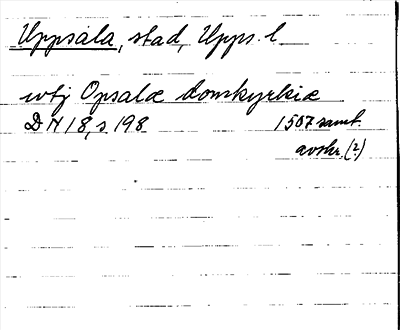 Uppsala, stad, Upps. l.
utj Opsalæ domkyrkiæ
DN 18, s. 198 1507 samt.
avskr. (?)